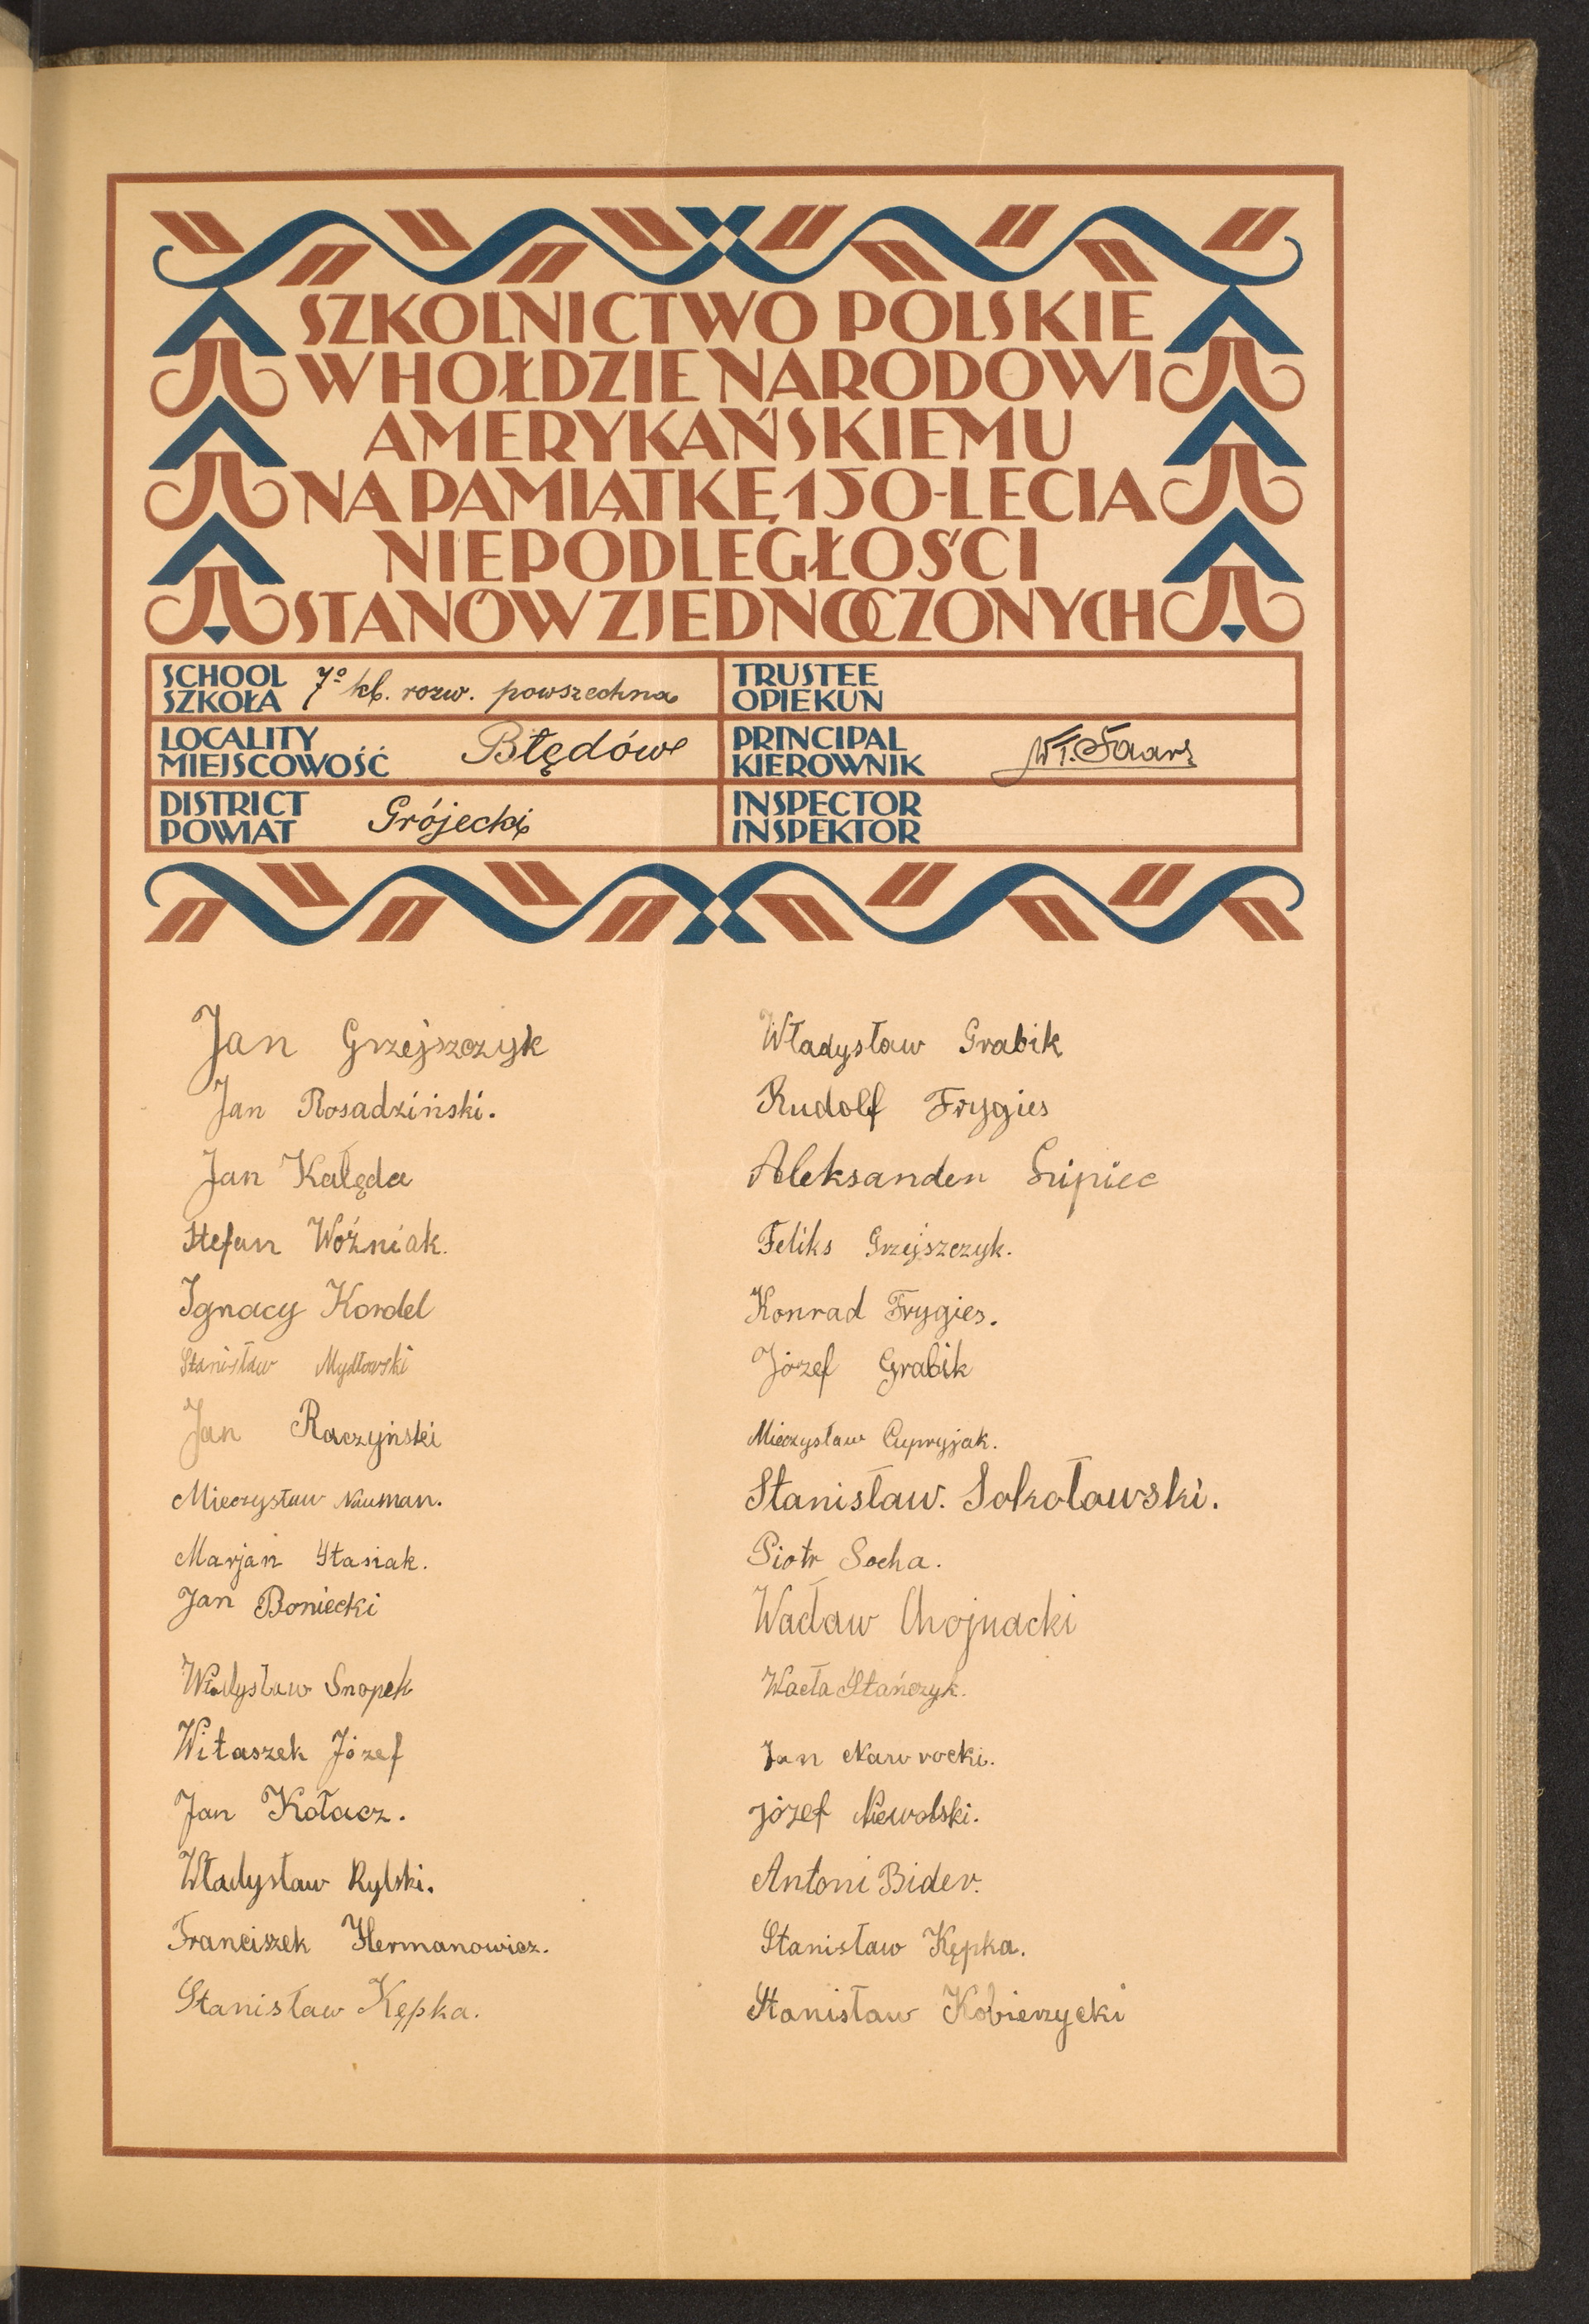 SZKOLNICTWO POLSKIE
W HOŁDZIE NARODOWI
AMERYKAŃSKIEMU
NA PAMIĄTKĘ 150-LECIA
NIEPODLEGŁOŚCI
STANÓW ZJEDNOCZONYCH
SCHOOL
SZKOŁA
7º kl. rozw. powszechna
TRUSTEE
OPIEKUN
LOCALITY
MIEJSCOWOŚĆ
Błędów
PRINCIPAL
KIEROWNIK
Wł.
DISTRICT
POWIAT
Grójecki
INSPECTOR
INSPEKTOR
Jan Grzejszczyk
Jan Rosadziński.
Jan Kalęda
Stefan Woźniak.
Ignacy Kordel
Stanisław Mydłowski
Jan Raczyński
Mieczysław Nauman.
Marjan Stasiak.
Jan Boniecki
Władysław Snopek
Witaszek Józef
Jan Kołacz.
Władysław Rylski.
Franciszek Hermanowicz.
Stanisław Kępka.
Władysław Grabik
Rudolf Frygies
Aleksander Lipiec
Feliks Grzejszczyk.
Konrad Frygies.
Józef Grabik
Mieczysław Cupryjak.
Stanisław. Sokołowski.
Piotr Socha.
Wacław Chojnacki
Wacła Stańczyk.
Jan Nawrocki.
Józef Niewolski.
Antoni Bider.
Stanisław Kępka.
Stanisław Kobierzycki